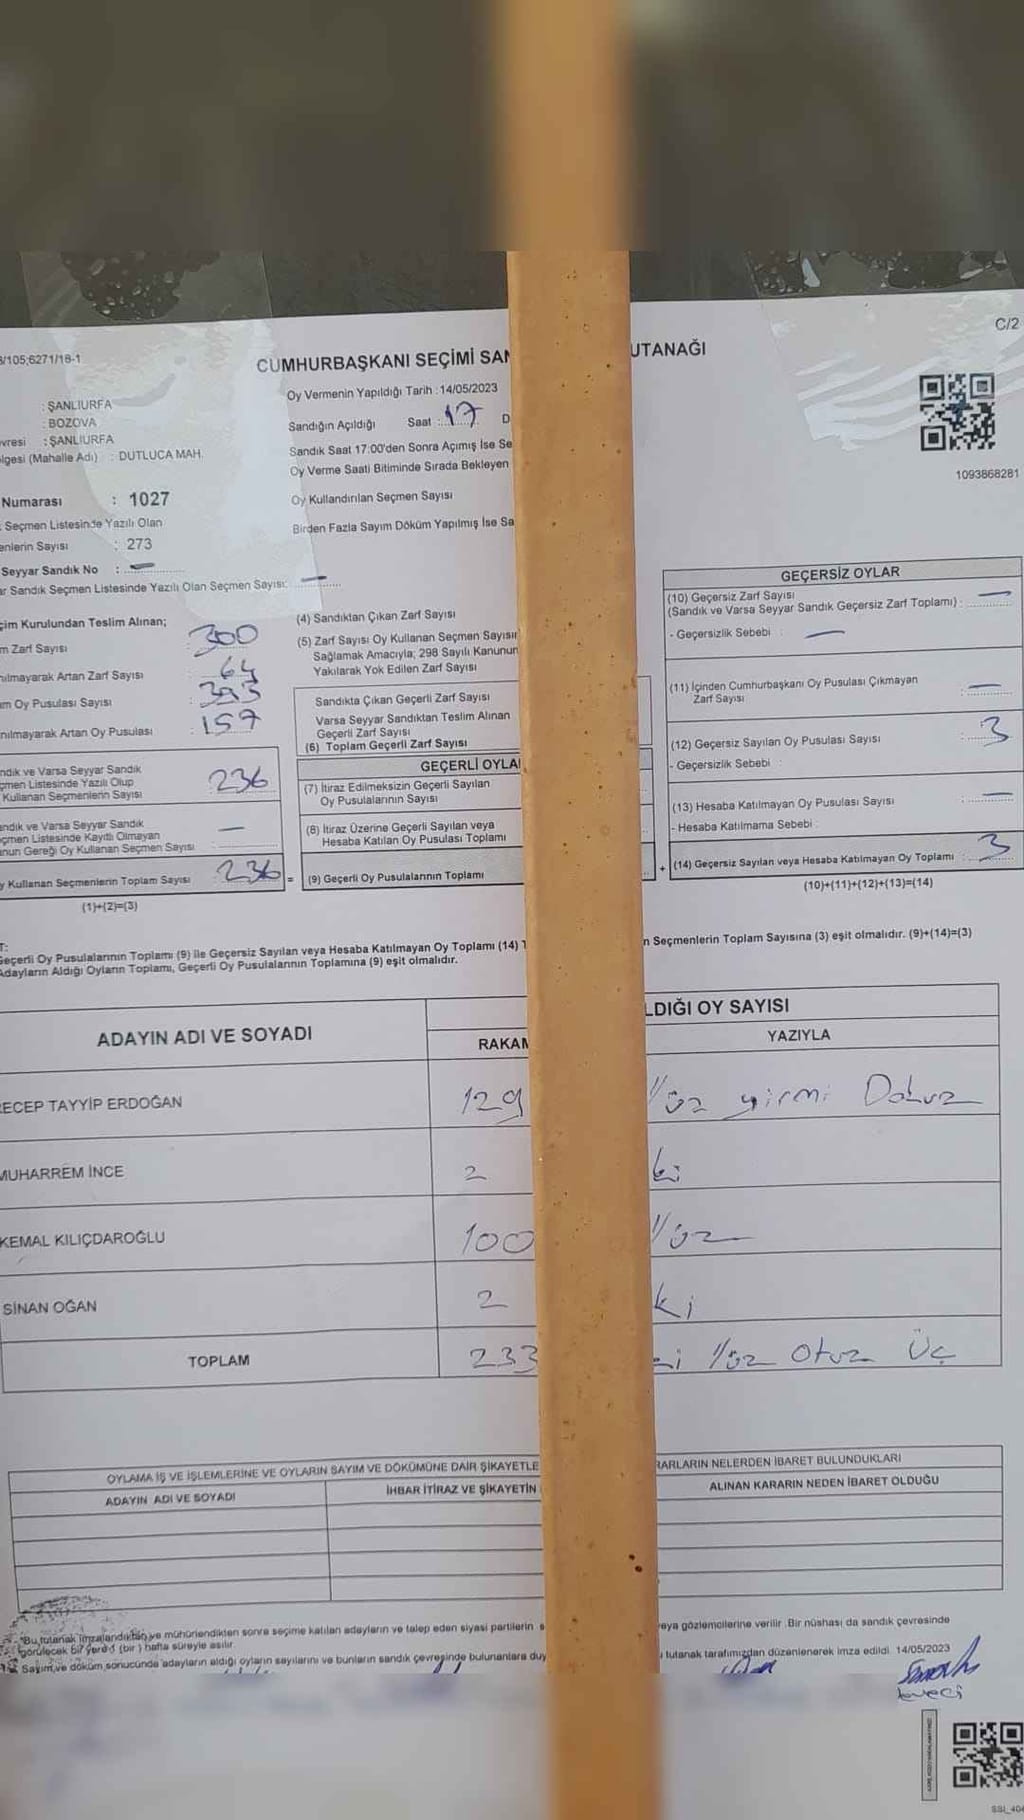 C/2
8/105;6271/18-1
CUMHURBAŞKANI SEÇİMİ SAN UTANAĞI
Oy Vermenin Yapıldığı Tarih : 14/05/2023
: ŞANLIURFA
: BOZOVA
Sandığın Açıldığı Saat : 17 D
vresi : ŞANLIURFA
lgesi (Mahalle Adı) : DUTLUCA MAH.
Sandık Saat 17:00'den Sonra Açımış İse Se
Oy Verme Saati Bitiminde Sırada Bekleyen
1093868281
Numarası : 1027
Oy Kullandırılan Seçmen Sayısı
Seçmen Listesinde Yazılı Olan
enlerin Sayısı : 273
Birden Fazla Sayım Döküm Yapılmış İse Sa
Seyyar Sandık No : —
ar Sandık Seçmen Listesinde Yazılı Olan Seçmen Sayısı: —
çim Kurulundan Teslim Alınan;
m Zarf Sayısı : 300
nılmayarak Artan Zarf Sayısı : 64
am Oy Pusulası Sayısı : 393
nılmayarak Artan Oy Pusulası : 157
ndık ve Varsa Seyyar Sandık
çmen Listesinde Yazılı Olup
Kullanan Seçmenlerin Sayısı 236
andık ve Varsa Seyyar Sandık
çmen Listesinde Kayıtlı Olmayan
nun Gereği Oy Kullanan Seçmen Sayısı —
y Kullanan Seçmenlerin Toplam Sayısı : 236 =
(1)+(2)=(3)
(4) Sandıktan Çıkan Zarf Sayısı
(5) Zarf Sayısı Oy Kullanan Seçmen Sayısın
Sağlamak Amacıyla; 298 Sayılı Kanunun
Yakılarak Yok Edilen Zarf Sayısı
Sandıkta Çıkan Geçerli Zarf Sayısı
Varsa Seyyar Sandıktan Teslim Alınan
Geçerli Zarf Sayısı
(6) Toplam Geçerli Zarf Sayısı
GEÇERLİ OYLA
(7) İtiraz Edilmeksizin Geçerli Sayılan
Oy Pusulalarının Sayısı
(8) İtiraz Üzerine Geçerli Sayılan veya
Hesaba Katılan Oy Pusulası Toplamı
(9) Geçerli Oy Pusulalarının Toplamı +
GEÇERSİZ OYLAR
(10) Geçersiz Zarf Sayısı
(Sandık ve Varsa Seyyar Sandık Geçersiz Zarf Toplamı) : —
- Geçersizlik Sebebi : —
(11) İçinden Cumhurbaşkanı Oy Pusulası Çıkmayan
Zarf Sayısı : —
(12) Geçersiz Sayılan Oy Pusulası Sayısı : 3
- Geçersizlik Sebebi :
(13) Hesaba Katılmayan Oy Pusulası Sayısı : —
- Hesaba Katılmama Sebebi
(14) Geçersiz Sayılan veya Hesaba Katılmayan Oy Toplamı : 3
(10)+(11)+(12)+(13)=(14)
T:
Geçerli Oy Pusulalarının Toplamı (9) ile Geçersiz Sayılan veya Hesaba Katılmayan Oy Toplamı (14) T n Seçmenlerin Toplam Sayısına (3) eşit olmalıdır. (9)+(14)=(3)
Adayların Aldığı Oyların Toplamı, Geçerli Oy Pusulalarının Toplamına (9) eşit olmalıdır.
ADAYIN ADI VE SOYADI LDIĞI OY SAYISI
RAKAM YAZIYLA
RECEP TAYYİP ERDOĞAN 129 Yüz yirmi Dokuz
MUHARREM İNCE 2 ki
KEMAL KILIÇDAROĞLU 100 Yüz
SİNAN OĞAN 2 ki
TOPLAM 233 ki Yüz Otuz Üç
OYLAMA İŞ VE İŞLEMLERİNE VE OYLARIN SAYIM VE DÖKÜMÜNE DAİR ŞİKAYETLE RARLARIN NELERDEN İBARET BULUNDUKLARI
ADAYIN ADI VE SOYADI İHBAR İTİRAZ VE ŞİKAYETİN ALINAN KARARIN NEDEN İBARET OLDUĞU
*Bu tutanak imzalandıktan ve mühürlendikten sonra seçime katılan adayların ve talep eden siyasi partilerin s veya gözlemcilerine verilir. Bir nüshası da sandık çevresinde
görülecek bir yere 1 (bir) hafta süreyle asılır.
Sayım ve döküm sonucunda adayların aldığı oyların sayılarını ve bunların sandık çevresinde bulunanlara duy tutanak tarafımızdan düzenlenerek imza edildi. 14/05/2023